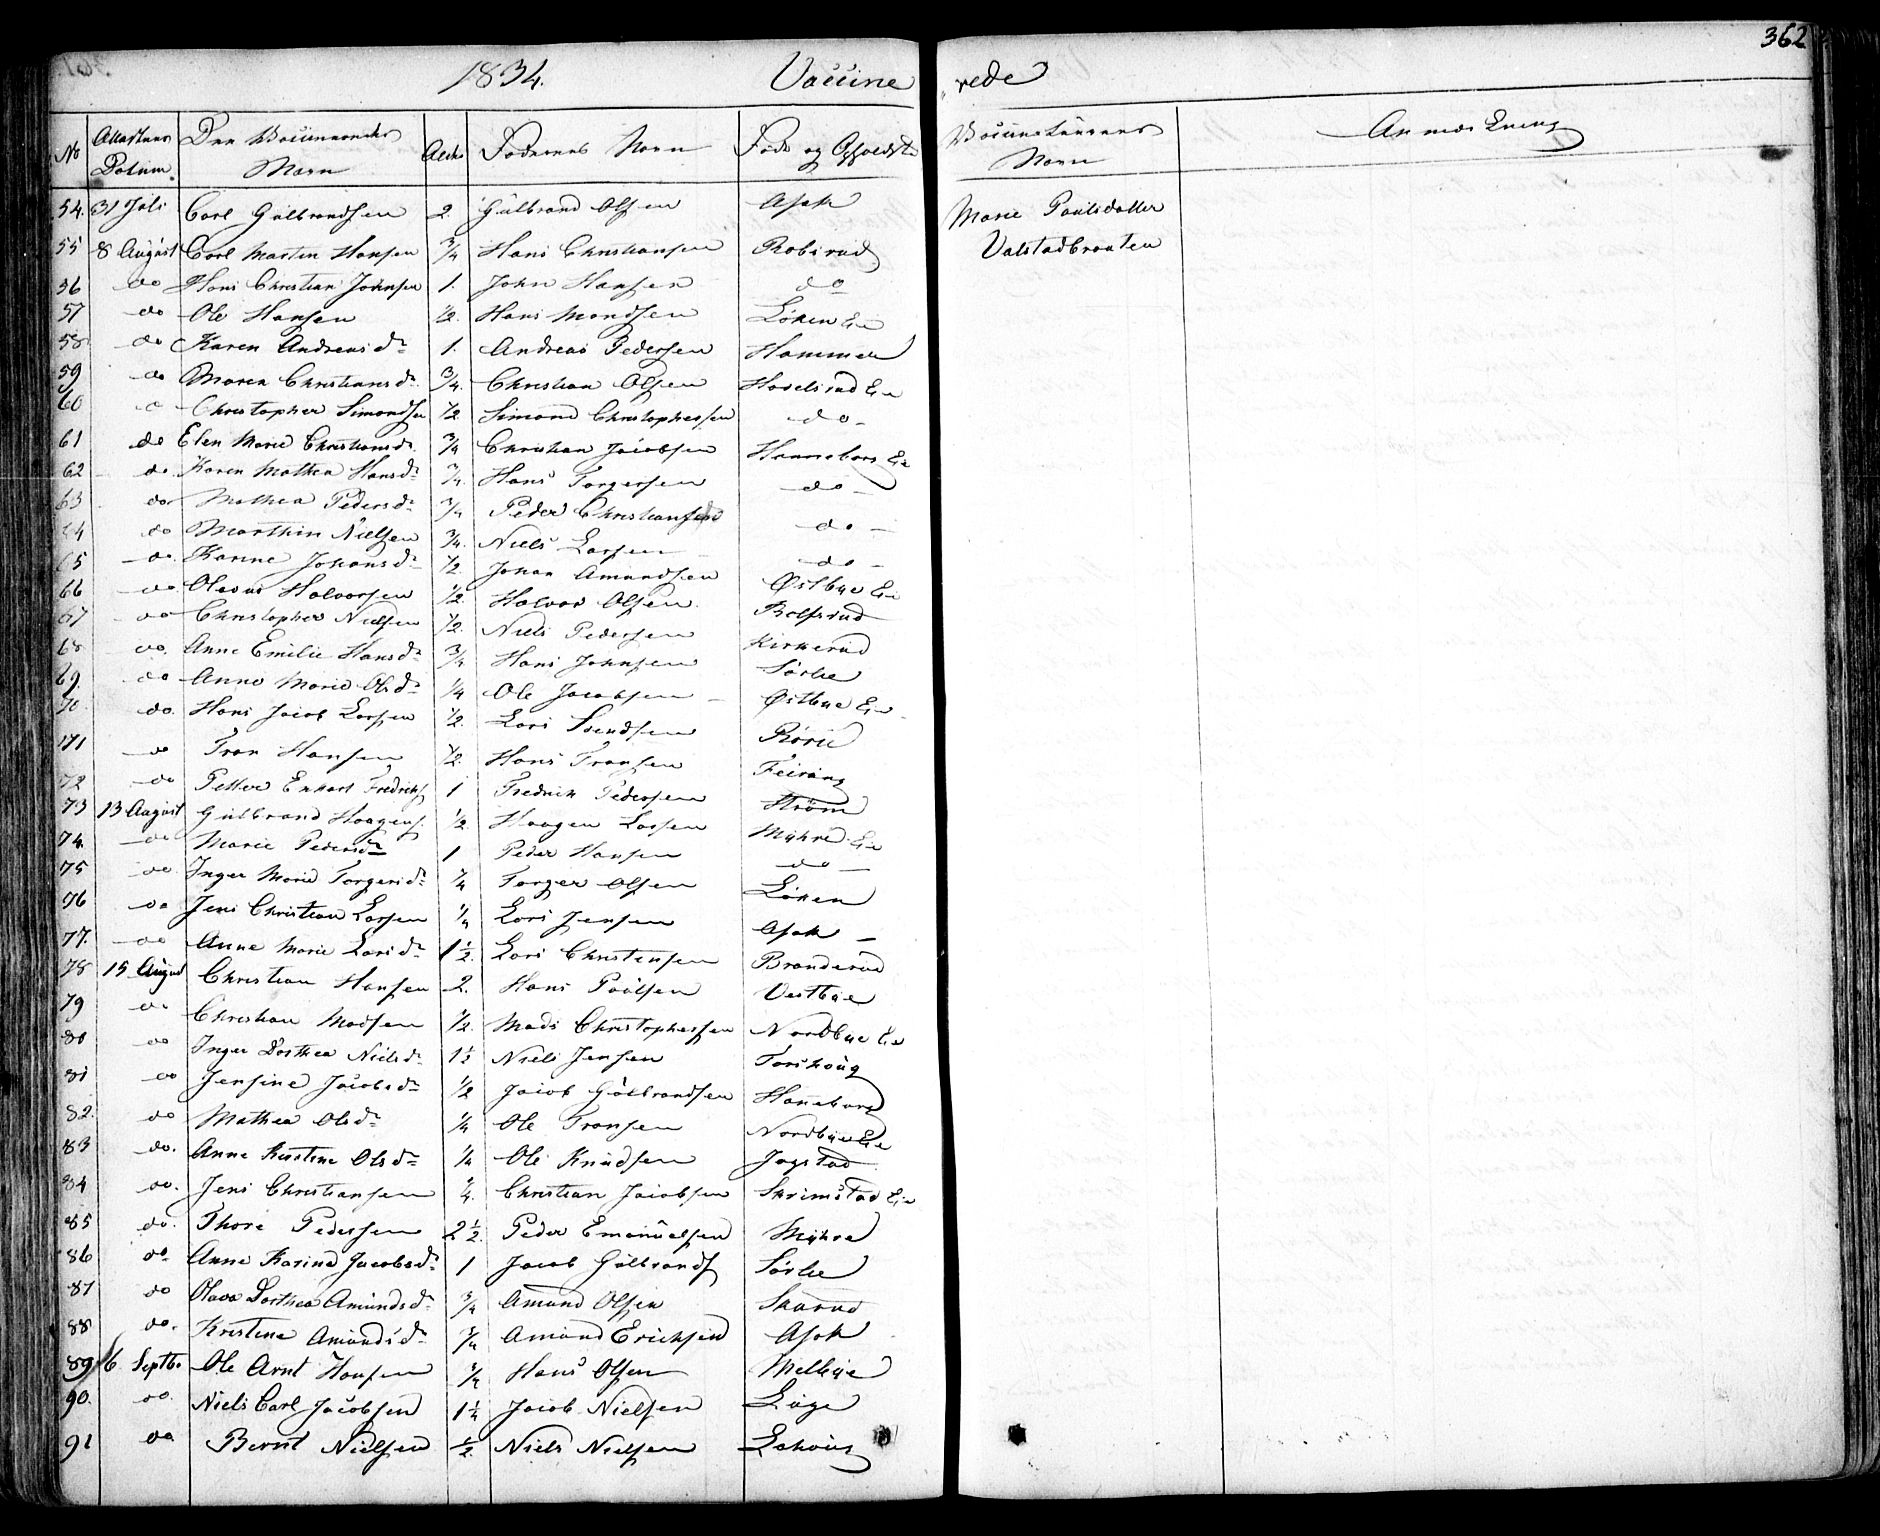 362
1834. Vaccine rede
No Attestens Datum. Den Vaccineredes Navn Alder Faderens Navn Føde og Opholdst. Vaccinateurens Navn Anmærkning
54. 31 Juli Carl Gulbrandsen 2. Gulbrand Olsen Asak Marie Paulsdatter
55 8 August Carl Martin Hansen 3/4 Hans Christiansen Robsrud Valstadbraaten
56 do Hans Christian Johnsen 1. John Hansen do
57 do Ole Hansen 1/2. Hans Mondsen Löken Eie
58 do Karen Andreasdr 1. Andreas Pedersen Hammer
59 do Maren Christiansdr 3/4. Christian Olsen Haselsrud Eie
60 do Christopher Simondsen 1/2 Simond Christophersen do
61 do Elen Marie Christiansdr 3/4 Christian Jacobsen Hanneborg Eie
62 do Karen Mathea Hansdr 3/4 Hans Torgersen do
63 do Mathea Pedersdr 3/4 Peder Christiansen do
64 do Marthin Nielsen 3/4. Niels Larsen do
65 do Karine Johansdr 1/2 Johan Amundsen Østbye Eie
66 do Olavus Halvorsen 1/2. Halvor Olsen Bolfsrud
67 do Christopher Nielsen 1/2. Niels Pedersen Kirkerud
68 do. Anne Emilie Hansdr 3/4 Hans Johnsen Sørlie
69. do Anne Marie Olsdr 1/4 Ole Jacobsen Østbye Eie
70. do. Hans Jacob Larsen 1/2. Lars Svendsen Rörie
71 do Tron Hansen 1/2. Hans Tronsen Feiring
72 do Petter Enhart Fredriks. 1 Fredrich Pedersen Ström
73 13 August Gulbrand Haagens. 1/2. Haagen Larsen Myhre Eie
74. do Marie Pedersdr 1 Peder Hansen do
75 do Inger Marie Torgersdr 1/4 Torger Olsen Löken
76 do Jens Christian Larsen 1/4 Lars Jensen Asak
77. do Anne Marie Larsdr 1 1/2. Lars Christensen Branderud
78 15 August Christian Hansen 2. Hans Paulsen Vestbye
79 do Christian Madsen 1/2. Mads Christophersen Nordbye Eie
80 do Inger Dorthea Nielsdr 1 1/2 Niels Jensen Torshoug
81 do Jensine Jacobsdr 1/2 Jacob Gulbrandsen Haneborg
82. do Mathea Olsdr 1/4 Ole Tronsen Nordbye Eie
83 do. Anne Kirstine Olsdr 1/4 Ole Knudsen Jogstad
84 do. Jens Christiansen 1/4. Christian Jacobsen Skrimstad Eie
85 do. Thore Pedersen 2 1/2. Peder Emanuelsen Myhre
86 do Anne Karine Jacobsdr 1 Jacob Gulbrands Sørlie
87 do Olava Dorthea Amundsdr 3/4 Amund Olsen Skarud
88 do. Kristine Amundsdr 3/4 Amund Erichsen Asak
89 16 Septbr Ole Arnt Hansen 3/4 Hans Olsen Melbye
90. do. Niels Carl Jacobsen 1 1/4 Jacob Nielsen Luge
91 do Bernt Nielsen 1/2. Niels Nielsen